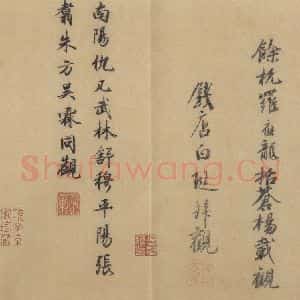 餘杭羅志龍括蒼楊載觀
錢唐白珽拜觀
南陽仇几武林舒穆平陽張
翥朱方吳霖同觀
Shufawang.cn